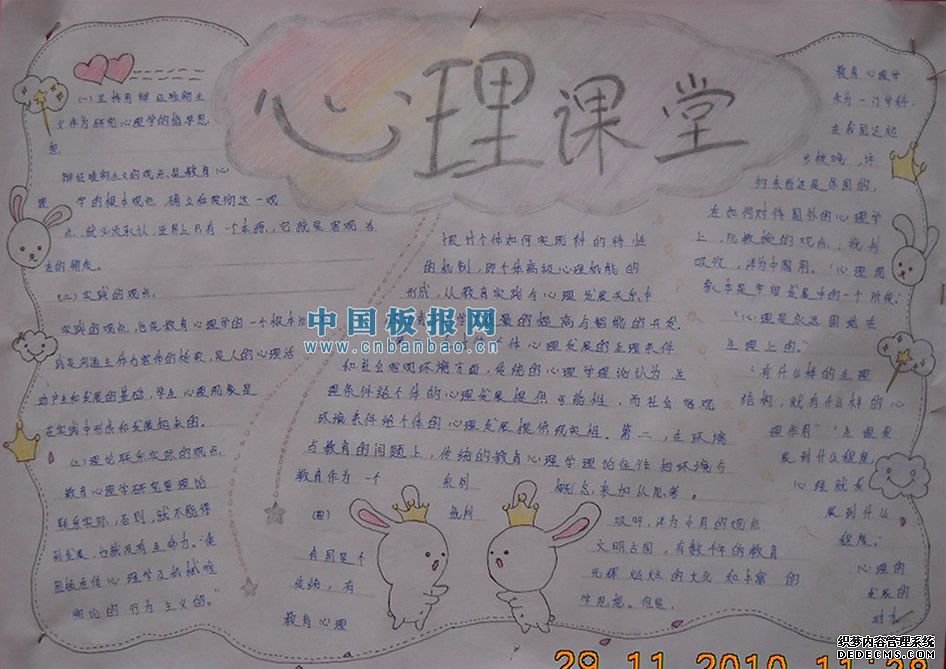 心理课堂
(一)坚持用辩证唯物主
义作为研究心理学的指导思
想
辩证唯物主义的观点,是教育心
理学的根本观点,确立和贯彻这一观
点,就必须承认,世界上只有一个本源,它就是客观
(二)实践的观点。
实践的观点,也是教育心理学的一个根本
践是沟通主体与客体的桥梁,是人的心理活
动产生和发展的基础,学生心理现象是
在实践中形成和发展起来的。
(三)理论联系实际的观点。
教育心理学研究是理论
联系实际,否则,就不能得
到发展,也就没有生命力。
心理学及机械唯
物论的行为主义的。"
探讨个体如何实现种的特性
的机制,即个体高级心理机能的
形成,从教育实践与心理发展关系中
量的提高与智能的开发
体心理发展的生理条件
和社会客观环境方面,传统的心理学理论认为生
理条件给个体的心理发展提供可能性,而社会客观
环境条件给个体的心理发展提供现实性。第二,在环境
与教育的问题上,传统的教育心理学理论往往把环境与
教育作为一个
系列
概念,来加以思考。
(四)
我国是个
传统,有
教育心理
吸收,洋为中用的观点
文明古国,有数千年的教育
光辉灿烂的文化和丰富的
学思想。但是,
教育心理学
作为一门学科,
在我国还起
步较晚,许
多东西还是外国的。
在如何对待国外的心理学
上,潘教授的观点:批判
吸收,洋为中用。"心理现
象本是年龄发展中的一个阶段;
"心理是永远固着在
生理上的。"
"有什么样的生理
结构,就有什么样的心
理作用""生理发
展到什么程度,
心理就发
展到什么
程度;
心理的
发展的
中国板报网
www.cnbanbao.cn
29.11.2010 11:28
织梦内容管理系统
DEDECMS.COM